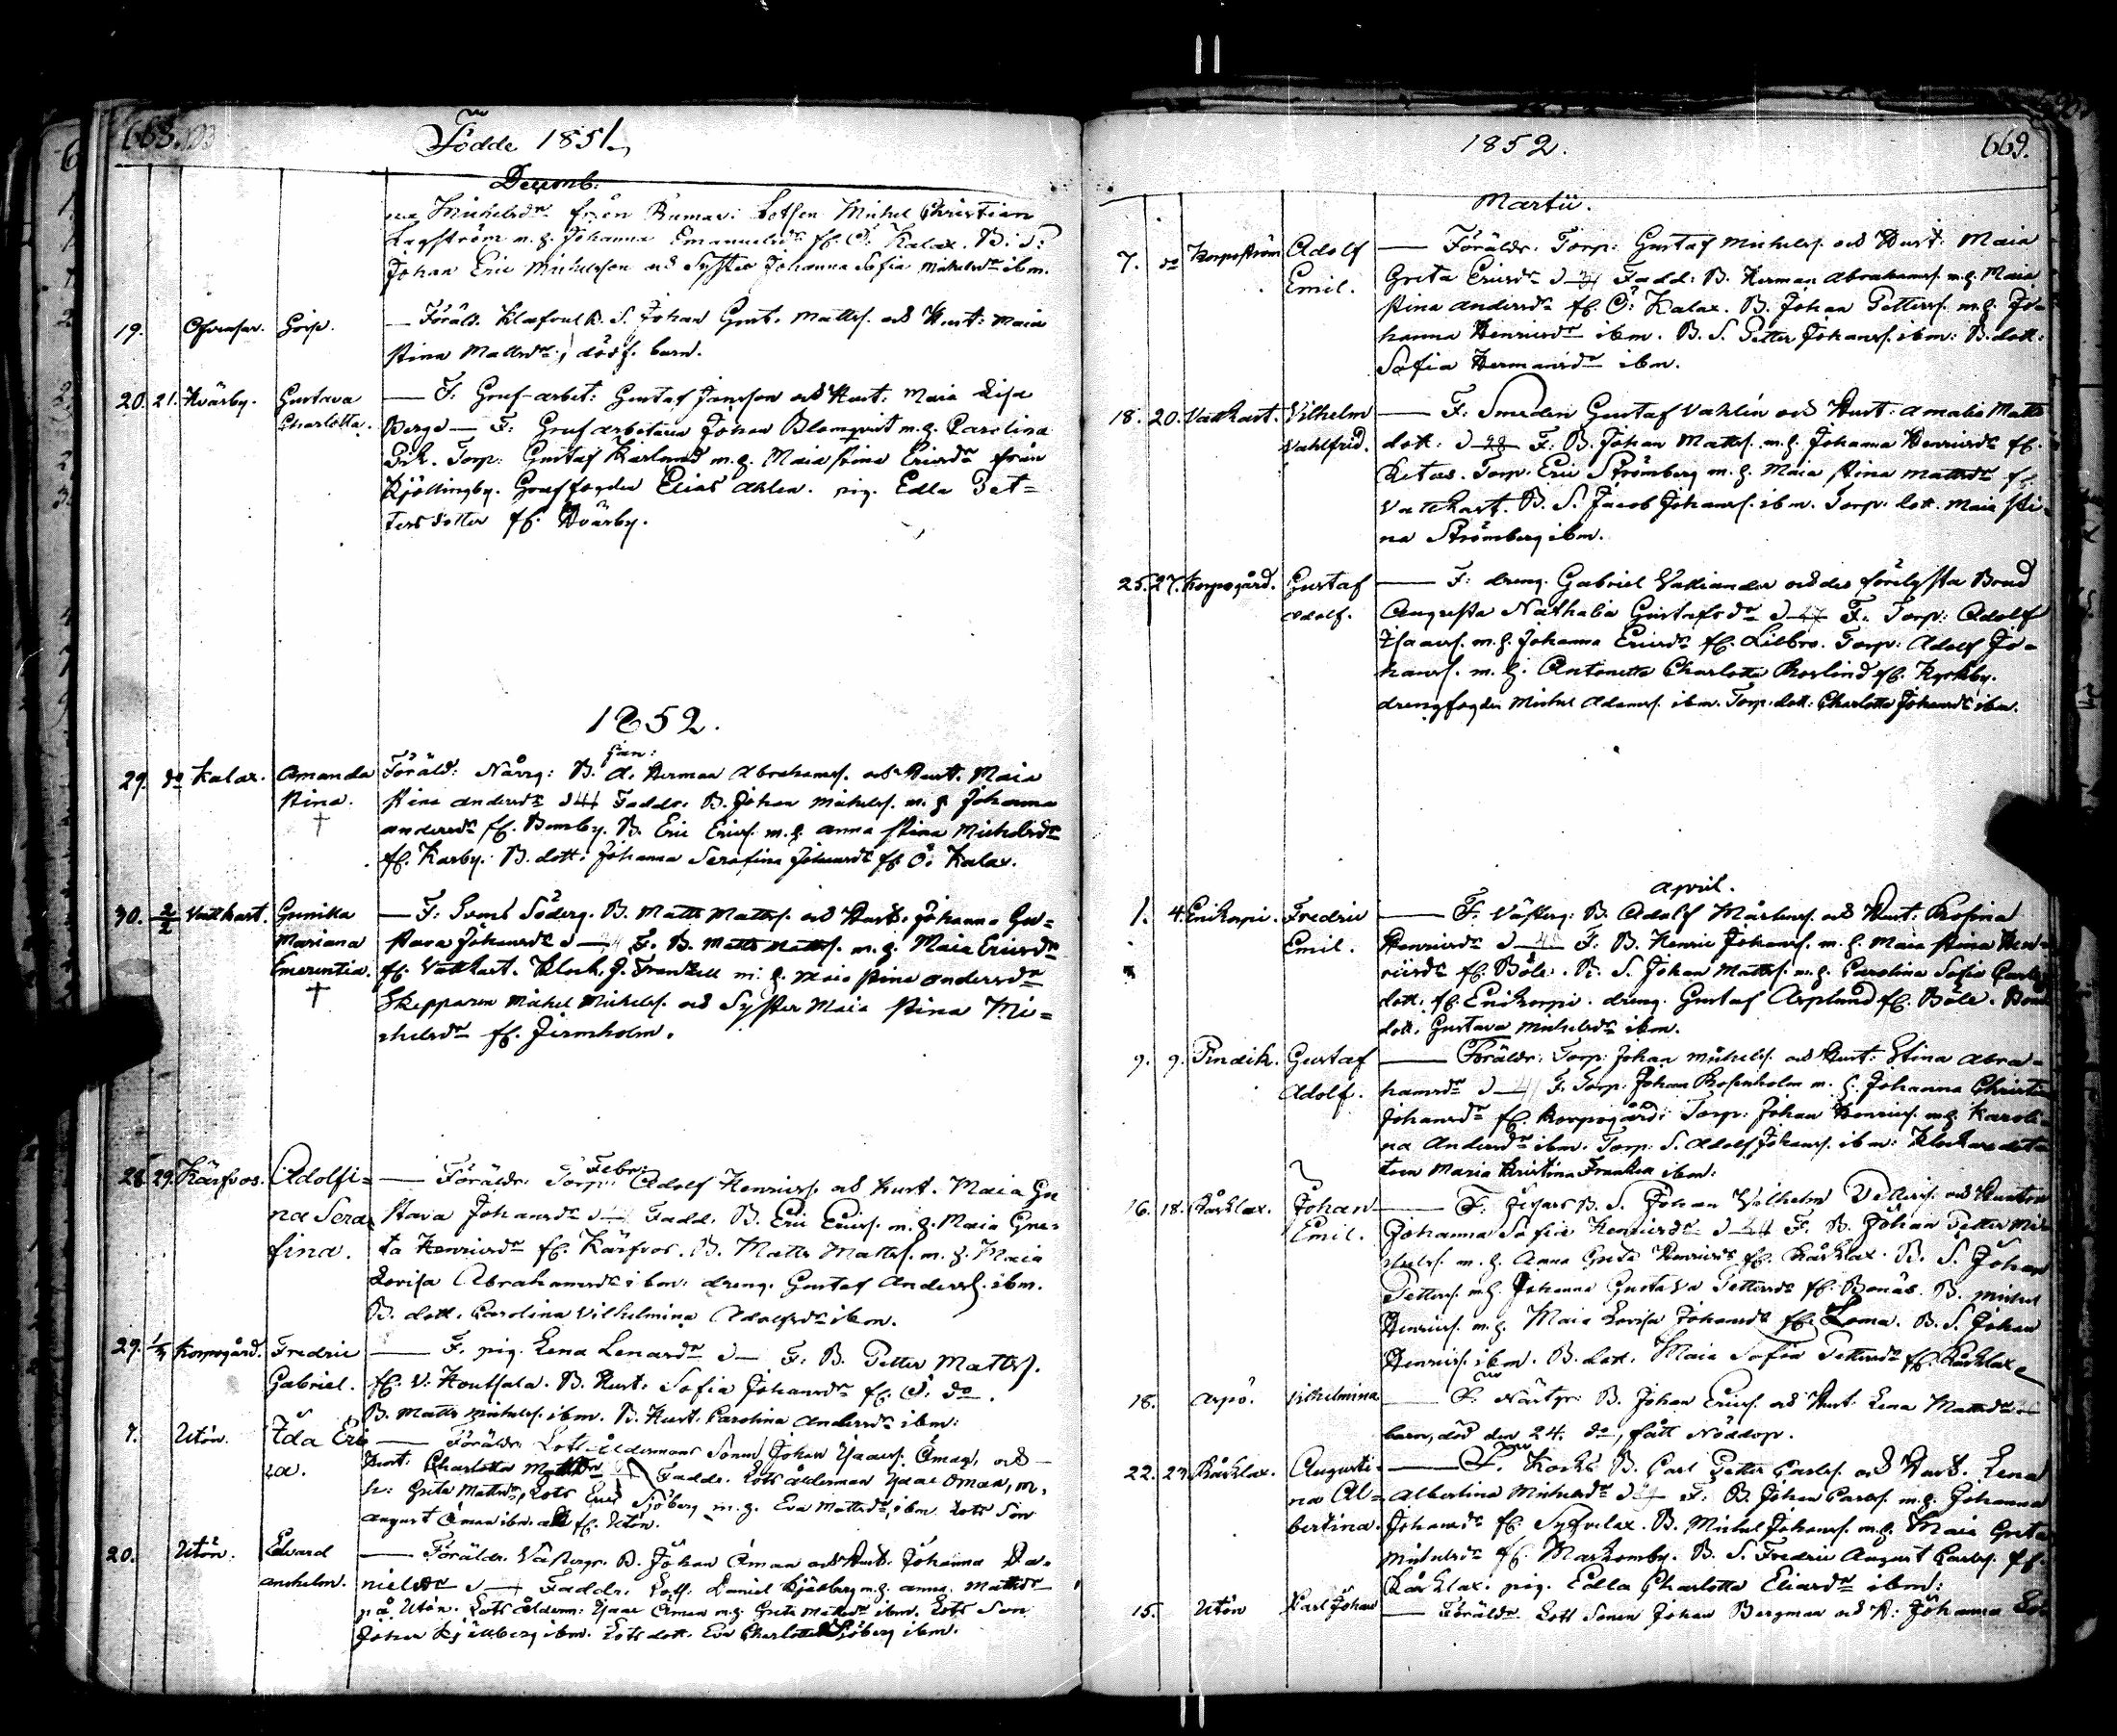 668.
Födde 1851.
Decemb:
na Michelsdr från Rumar: Lotsen Michel Christian
Lagström m. h. Johanna Emanuelsdr fr. Ö. Kalax. B. S:
Johan Eric Michelsson och Syster Johanna Sofia Michelsdr ibm.
19. Gosse. — Föräld. S. Johan Gust. Mattss. och Hust: Maia
Stina Mattsdr, dödf. barn.
20. 21. Hvärby. Gustava — F: Gruf-arbet: Gustaf Jansson och Hust: Maia Lisa
Charlotta. Berge — F: Grufarbetaren Johan Blomqvist m. h. Carolina
Torp: Gustaf Karlund m. h. Maia Stina Ericsdr från
Kjöttingby. Gruffogden Elias Ahlen. pig. Edla Pet=
tersdotter fr. Hvärby.
1852.
Jan:
29. do Kalax. Amanda Föräld: Norrg: B. A. Herman Abrahamss. och Hust. Maia
Stina. Stina Andersdr Fadd: B. Johan Michelss. m. h. Johanna
† Andersdr fr. Bonsby. B. Eric Ericss. m. h. Anna Stina Michelsdr
fr. Karby. B. dott: Johanna Serafina Johansdr fr. Ö. Kalax.
30. 2/2 Vattkast. Gunilla — F: Svens Söderg. B. Matts Mattss. och Hust: Johanna Gu=
Mariana stava Johansdr F. B. Matts Mattss. m. h. Maia Ericsdr
Emerentia. fr. Vattkast. Klock. J. Frenkell m. h. Maia Stina Andersdr
† Skepparen Michel Michelss. och Syster Maia Stina Mi=
chelsdr fr. Jermholm.
Febr:
28. 29. Kärfvos. Adolfi= — Föräldr: Torp: Adolf Henricss. och Hust. Maia Gu
na Sera= stava Johansdr Fadd. B. Eric Ericss. m. h. Maia Gre=
fina. ta Henricsdr fr. Kärfvos. B. Matts Mattss. m. h. Maia
Lovisa Abrahamsdr ibm: dreng. Gustaf Anderss. ibm.
B. dott. Carolina Vilhelmina Adolfsdr ibm.
29. Korpogård. Fredric — F. pig. Lena Lenardr F: B. Petter Mattss.
Gabriel. fr. V: Houtsala. B. Hust: Sofia Johansdr fr. Ö: do.
B. Matts Michelss. ibm. B. Hust. Carolina Andersdr ibm:
7. Utön. Ida Eri — Föräldr. Lotsåldermans Sonen Johan Isaacs. Öman, och
ca. Hust: Charlotta Mattsdr Faddr. Lotsålderman Isaac Öman, m.
h: Greta Mattsdr, Lots Eric Sjöberg m. h. Eva Mattsdr, ibm Lots Son
August Öman ibm. alla fr. Utön.
20. Utön. Edvard — Föräldr. Västergr. B. Johan Öman och Hust. Johanna Da=
Anshelm. nielsdr Faddr. Lots. Daniel Kjällberg m. h. Anna Mattsdr
på Utön. Lotsålderm: Isaac Öman m. h. Greta Mattsdr ibm. Lots Son
Johan Kjällberg ibm. Lots dott. Eva Charlotta Sjöberg ibm.
1852. 669.
Martii.
7. do Korpoström Adolf — Föräldr. Torp: Gustaf Michelss. och Hust: Maia
Emil. Greta Ericsdr Fadd: B. Herman Abrahamss. m. h. Maia
Stina Andersdr fr. Ö: Kalax. B. Johan Petterss. m. h. Jo=
hanna Henricsdr ibm. B. S. Petter Johanss. ibm: B. dott:
Sofia Hermansdr ibm.
18. 20. Vattkast. Vilhelm — F: Smeden Gustaf Vahlén och Hust: Amalia Matts
Vahlfrid. dott: F: B. Johan Mattss. m. h. Johanna Henricsdr fr.
Retais. Torp. Eric Strömberg m. h. Maia Stina Mattsdr fr.
Vattkast. B. S. Jacob Johanss. ibm. Torp. dott. Maia Sti=
na Strömberg ibm.
25. 27. Korpogård. Gustaf — F: dreng. Gabriel Valliander och des förelysta Brud
Adolf. Augusta Nathalia Gustafsdr F: Torp: Adolf
Isaacss. m. h. Johanna Ericsdr fr. Lillbro. Torp: Adolf Jo=
hanss. m. h. Antonetta Charlotta Roslind fr. Kyrkby.
drengfogden Michel Adamss. ibm. Torp. dott: Charlotta Johansdr ibm.
April.
1. 4. Enikorpi. Fredric — F. Västerg: B. Adolf Mårtenss. och Hust: Rosina
Emil. Henricsdr F. B. Henric Johanss. m. h. Maia Stina Hen=
ricsdr fr. Böle. B: S. Johan Mattss. m. h. Carolina Sofia Carls
dott: fr. Enikorpi. dreng. Gustaf Asplund fr. Böle. Bond
dott: Gustava Michelsdr ibm.
9. 9. Gustaf — Föräldr: Torp: Johan Michelss. och Hust: Stina Abra=
Adolf. hamsdr F. Torp: Johan Rosenholm m. h. Johanna Christina
Johansdr fr. Korpogård: Torp: Johan Henricss. m. h. Karoli=
na Andersdr ibm. Torp: S. Adolf Johanss. ibm: Klockare dot=
tern Maria Kristina Frenkell ibm:
16. 18. Kårklax. Johan — F. B. S. Johan Vilhelm Petterss. och Hustru
Emil. Johanna Sofia Henricsdr F. B. Johan Petter Mi=
chelss. m. h. Anna Greta Henricsdr fr. Kårklax. B. S. Johan
Petterss. m. h. Johanna Gustava Pettersdr fr. Bonäs. B. Michel
Henricss. m. h. Maia Lovisa Johansdr fr. Loma. B. S. Johan
Henricss. ibm. B. dott. Maia Sofia Pettersdr fr. Kårklax
18. Arpö. Vilhelmina — F. B. Johan Ericss. och Hust: Lena Mattsdr
barn, död den 24. do, fått Nöddop.
22. 27. Kårklax. Augusti= — F. Kocks B. Carl Petter Carlss. och Hust. Lena
na Al= Albertina Michelsdr F: B. Johan Carlss. m. h. Johanna
bertina. Johansdr fr. Syfvelax. B. Michel Johanss. m. h. Maia Greta
Michelsdr fr. Markomby. B. S. Fredric August Carlss. fr.
Kårklax. pig. Edla Charlotta Eliasdr ibm:
15. Utön Karl Johan — Föräldr Lots Sonen Johan Bergman och H: Johanna